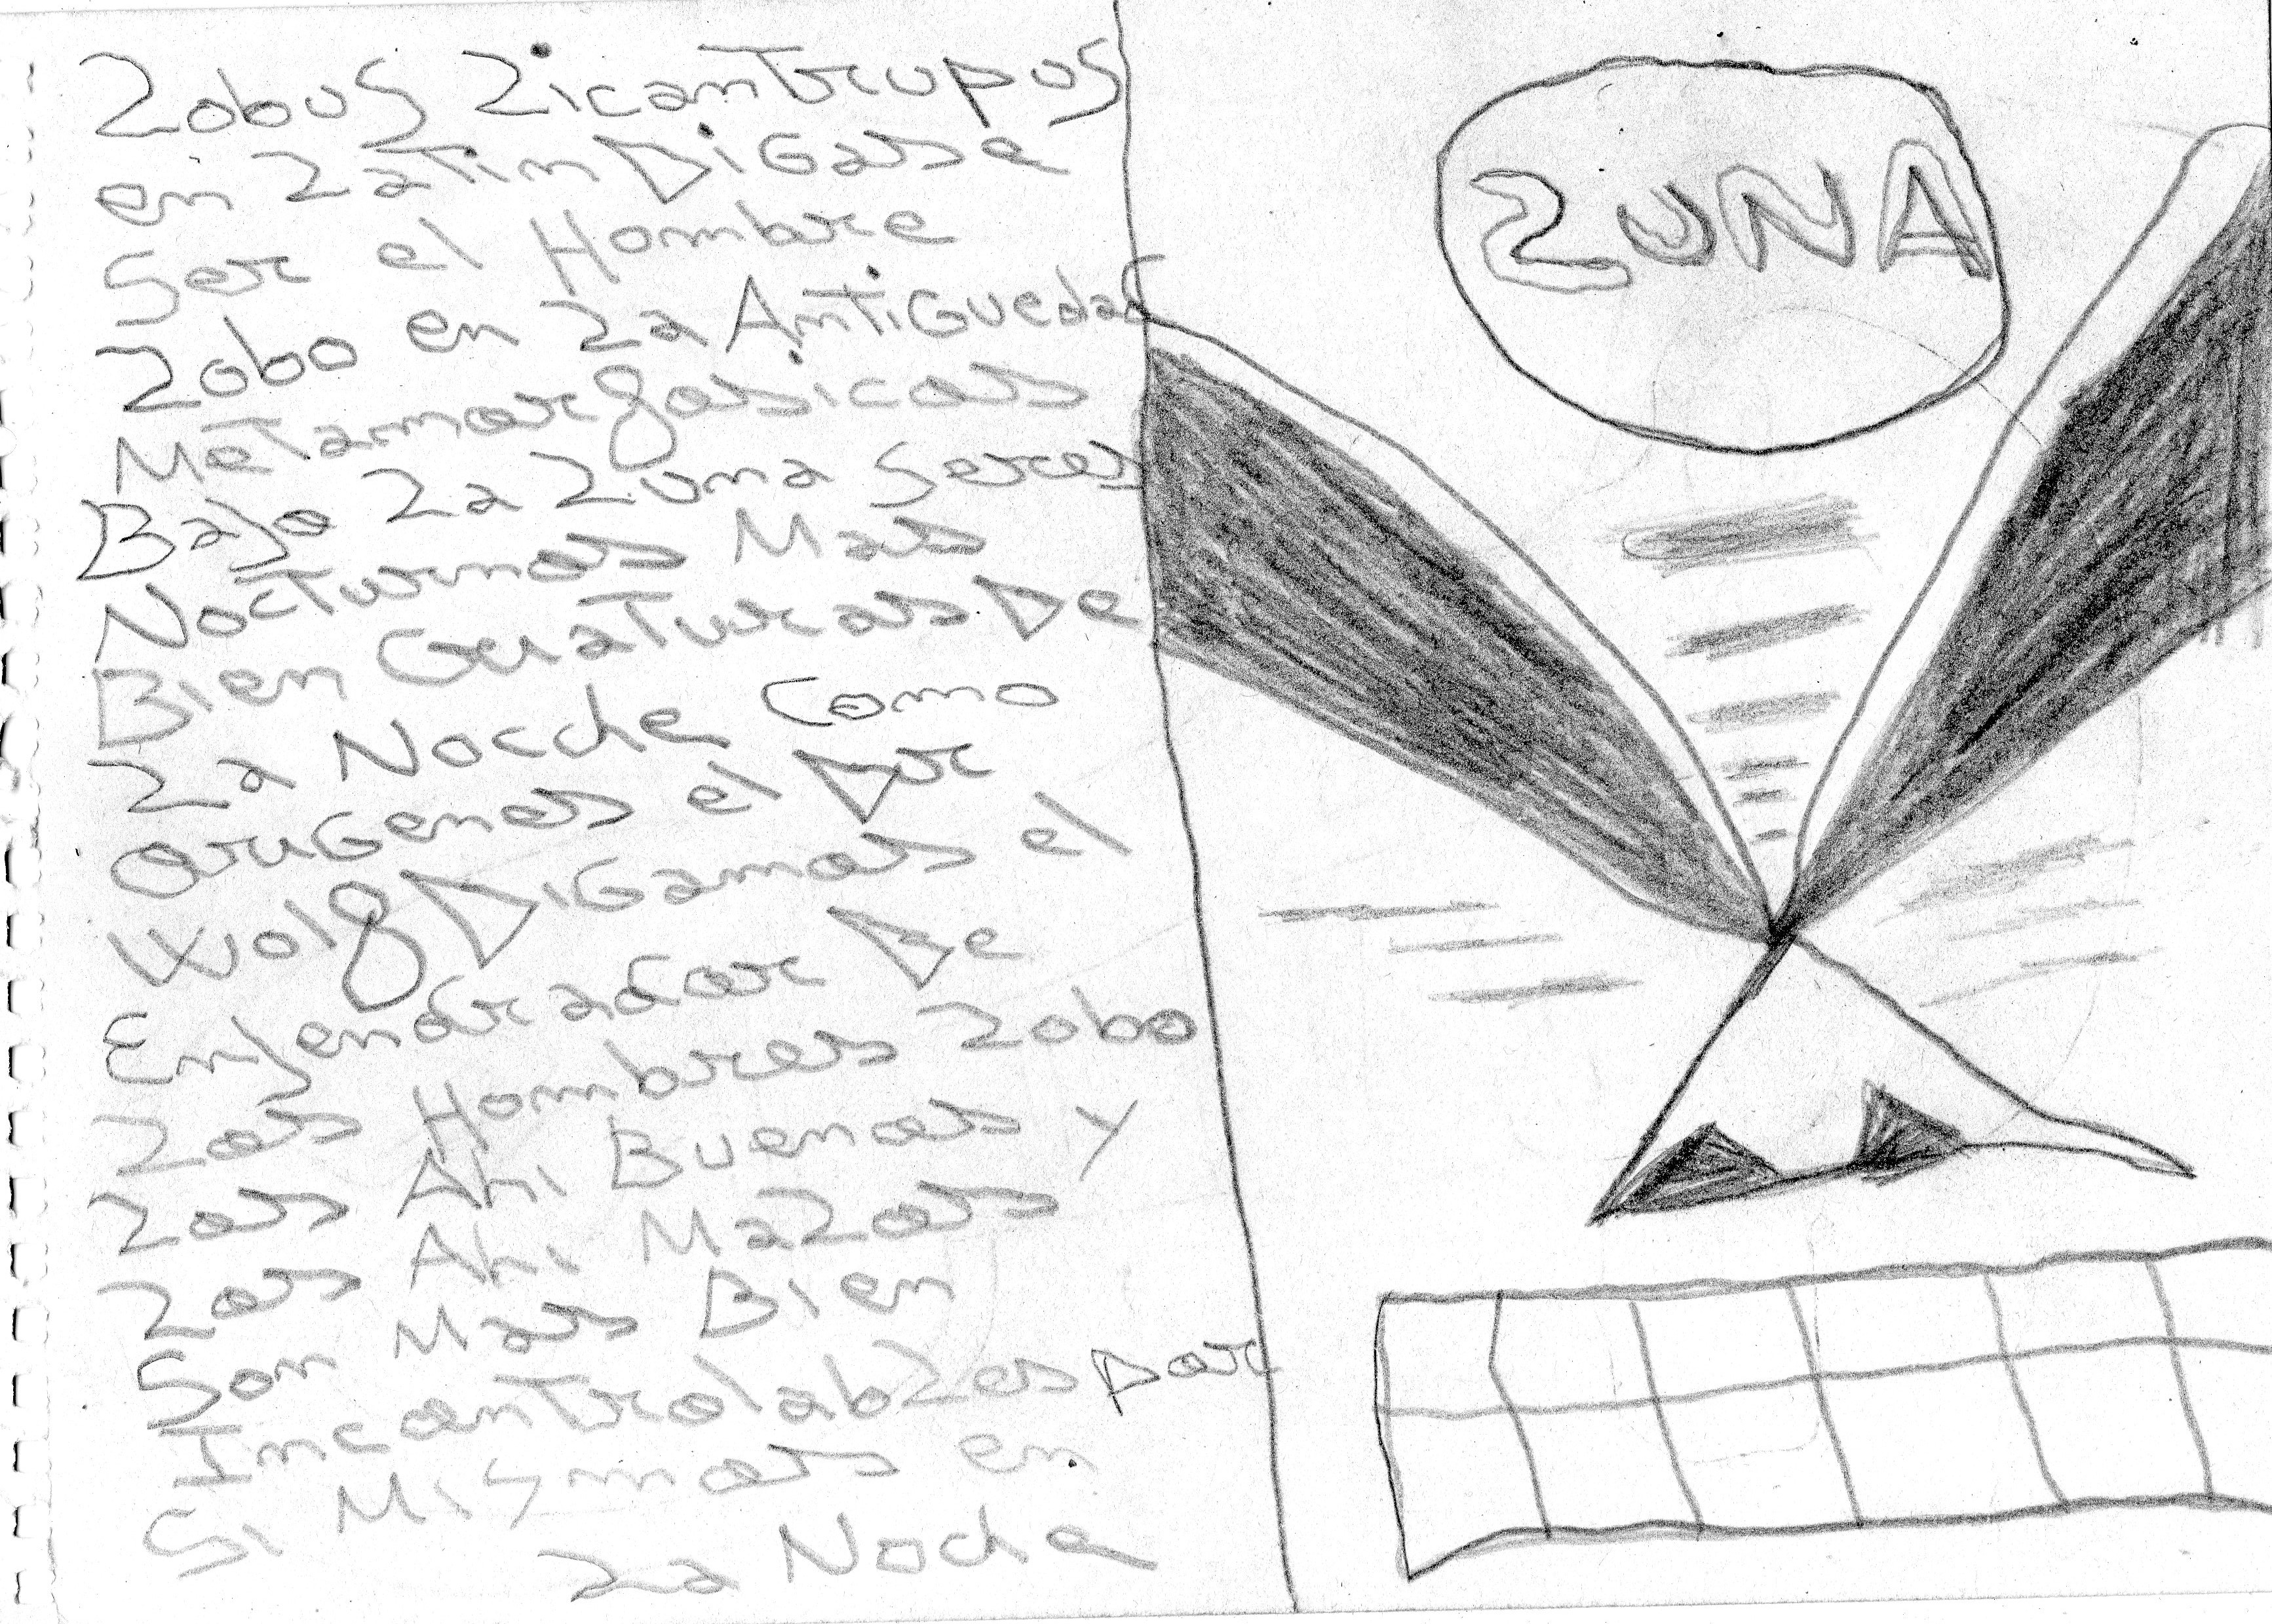 Lobus Licantrupus
en Latin DiGase
Ser el Hombre
Lobo en La AntiGuedad
Metamorfosicos
Bajo La Luna Seres
Nocturnos Mas
Bien Criaturas De
La Nocche Como
oriGenes el Dor
Wolf DiGamos el
Enjendrador De
Los Hombres Lobo
Los Ahi Buenos y
Los Ahi MaLos
Son Mas Bien
IncontrolabLes por
Si Mismos en
La Noche
LUNA